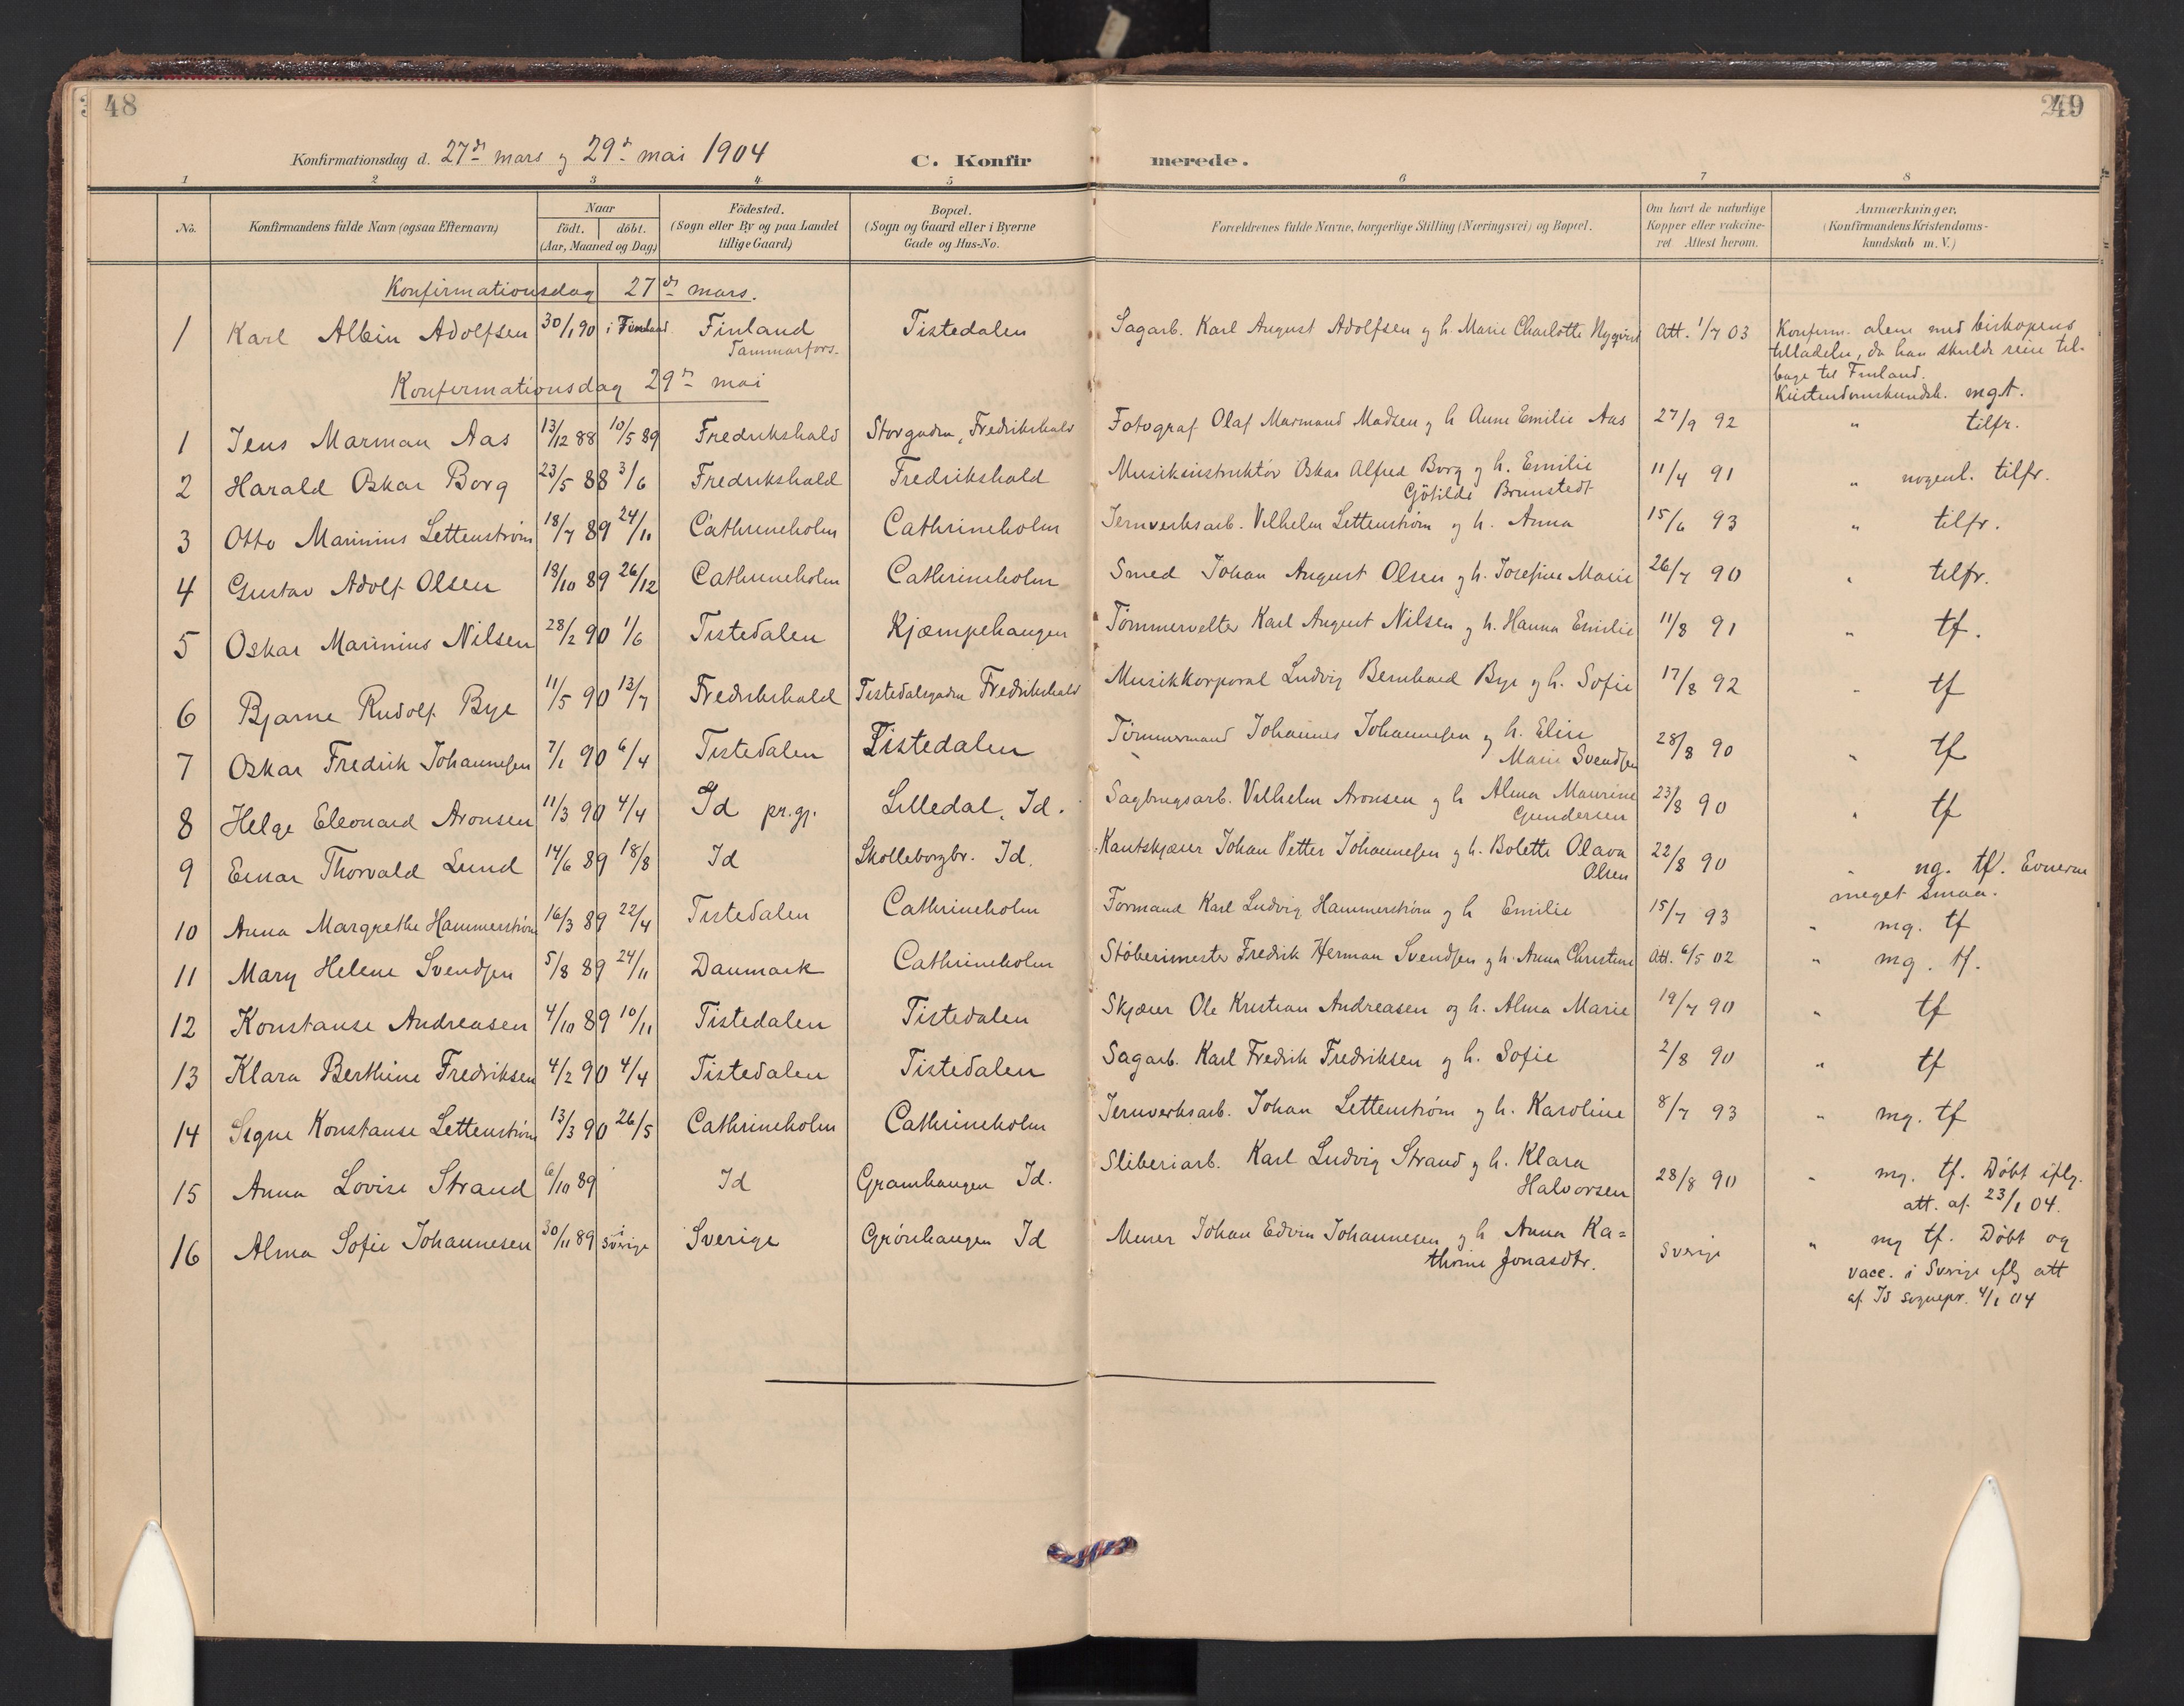 48
49
Konfirmationsdag d. 27de mars og 29de mai 1904
C. Konfirmerede.
1 2 3 4 5 6 7 8
No.
Konfirmandens fulde Navn (ogsaa Efternavn)
Naar
født. døbt.
(Aar, Maaned og Dag)
Fødested.
(Sogn eller By og paa Landet
tillige Gaard)
Bopæl.
(Sogn og Gaard eller i Byerne
Gade og Hus-No.
Forældrenes fulde Navne, borgerlige Stilling (Næringsvei) og Bopæl.
Om havt de naturlige
Kopper eller vakcine-
ret. Attest herom.
Anmærkninger.
(Konfirmandens Kristendoms-
kundskab m. V.)
Konfirmationsdag 27de mars.
1 Karl Albin Adolfsen 30/1 90 i Finland Finland Tistedalen Sagarb. Karl August Adolfsen og h. Marie Charlotte Nyqvist Att. 1/7 03 Konfirm. alene med biskopens
Tammarfors. tilladelse, da han skulde reise til-
bage til Finland.
Kristendomskundsk. mgt.
Konfirmationsdag 29de mai
1 Jens Marman Aas 13/12 88 10/5 89 Fredrikshald Storgaden, Fredrikshald Fotograf Olaf Marmand Madsen og h Anne Emilie Aas 27/9 92 " tilfr.
2 Harald Oskar Borg 23/5 88 3/6 Fredrikshald Fredrikshald Musikinstruktør Oskar Alfred Borg og h. Emilie 11/4 91 " nogenl. tilfr.
Götilde Brunstedt
3 Otto Marinius Lettenstrøm 18/7 89 24/11 Cathrineholm Cathrineholm Jernverksarb. Vilhelm Lettenstrøm og h. Anna 15/6 93 " tilfr.
4 Gustav Adolf Olsen 18/10 89 26/12 Cathrineholm Cathrineholm Smed Johan August Olsen og h. Josefine Marie 26/7 90 " tilfr.
5 Oskar Marinius Nilsen 28/2 90 1/6 Tistedalen Kjæmpehaugen Tømmervelter Karl August Nilsen og h. Hanna Emilie 11/8 91 " tf.
6 Bjarne Rudolf Bye 11/5 90 13/7 Fredrikshald Tistedalsgaden Fredrikshald Musikkorporal Ludvig Bernhard Bye og h. Sofie 17/8 92 " tf
7 Oskar Fredrik Johannesen 7/1 90 6/4 Tistedalen Tistedalen Tømmermand Johannes Johannesen og h. Elise 28/8 90 " tf
Marie Svendsen
8 Helge Eleonard Aronsen 11/3 90 4/4 Id pr.gj. Lilledal, Id. Sagbrugsarb. Vilhelm Aronsen og h Alma Maurine 23/8 90 " tf
Gundersen
9 Einar Thorvald Lund 14/6 89 18/8 Id Skolleborgbr. Id. Kantskjærer Johan Petter Johannesen og h. Bolette Olava 22/8 90 " ng. tf. Evnerne
Olsen meget smaa.
10 Anna Margrethe Hammerstrøm 16/3 89 22/4 Tistedalen Cathrineholm Formand Karl Ludvig Hammerstrøm og h Emilie 15/7 93 " mg. tf
11 Mary Helene Svendsen 5/8 89 24/11 Danmark Cathrineholm Støberimester Fredrik Herman Svendsen og h. Anna Christine Att. 6/5 02 " mg. tf.
12 Konstanse Andreasen 4/10 89 10/11 Tistedalen Tistedalen Skjærer Ole Kristian Andreasen og h. Alma Marie 19/7 90 " tf
13 Klara Berthine Fredriksen 4/2 90 4/4 Tistedalen Tistedalen Sagarb. Karl Fredrik Fredriksen og h. Sofie 2/8 90 " tf
14 Signe Konstanse Lettenstrøm 13/3 90 26/5 Cathrineholm Cathrineholm Jernverksarb. Johan Lettenstrøm og h. Karoline 8/7 93 " mg. tf
15 Anna Lovise Strand 6/10 89 Id Gramhaugen Id. Sliberiarb. Karl Ludvig Strand og h. Klara 28/8 90 " mg. tf. Døbt iflg.
Halvorsen att. af. 23/1 04.
16 Alma Sofie Johannesen 30/11 89 i Sverige Sverige Grønhaugen Id Murer Johan Edvin Johannesen og h Anna Ka= Sverige " mg tf. Døbt og
thrine Jonasdtr. vacc. i Sverige iflg att
af Id sognepr. 4/1 04